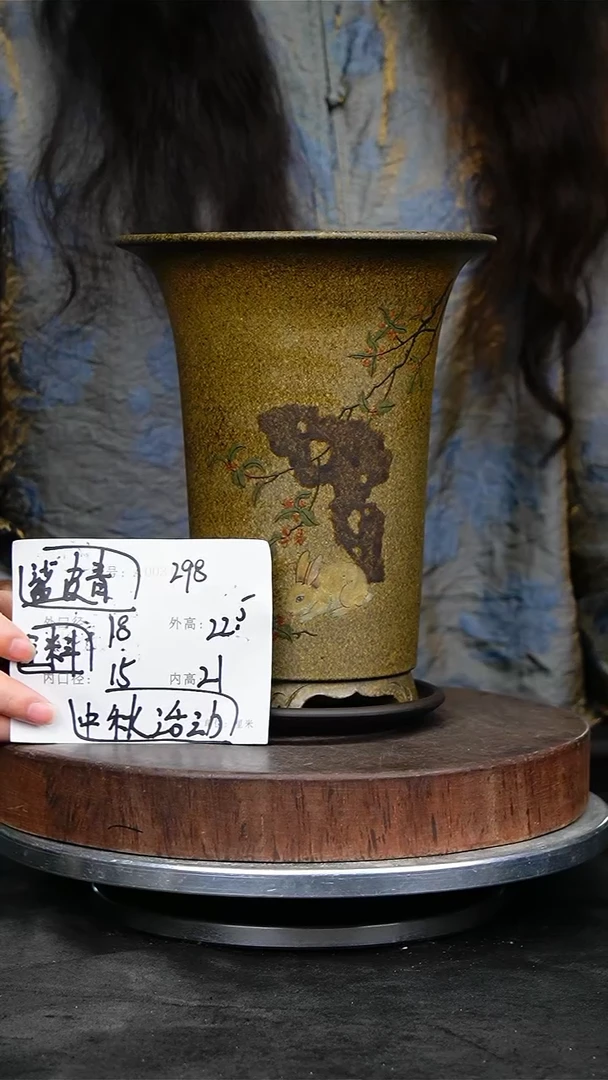 鲨皮青 号: 298
外口径: 18 外高: 22.5
料
内口径: 15 内高 21
中秋活动 厘米